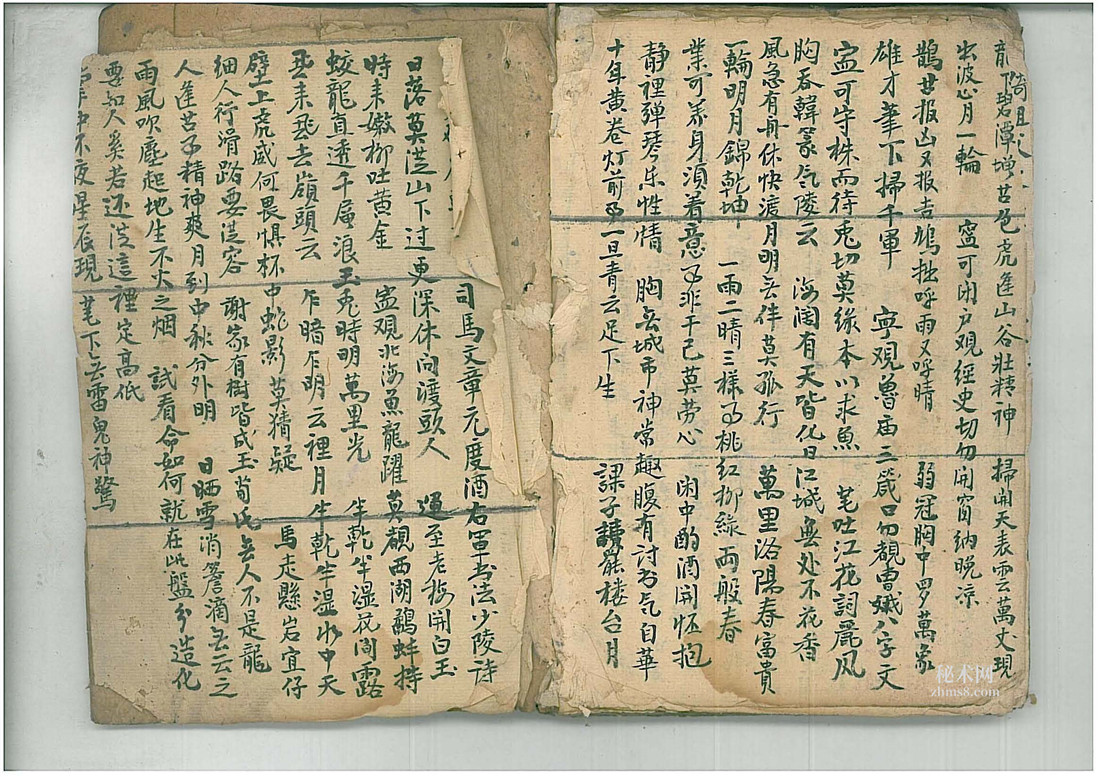 碧潭增苔色虎逢山谷壯精神 掃開天表雲萬丈現
出波心月一輪 寍可閉户观經史切勿開窗纳晚凉
鵲廿报凶又报吉鳩拙呼雨又呼晴 弱冠胸中罗萬象
雄才筆下掃千軍 寍观魯庙三箴口勿覩曹娥八字文
寍可守株而待兎切莫緣本以求魚 笔吐江花詞麗风
胸吞韓篆气陵云 海阔有天皆化日江城無处不花香
風急有舟休快渡月明无伴莫孤行 萬里洛陽春富貴
一輪明月錦乾坤 一雨二晴三樣事桃红柳绿両般春
業可养身湏着意事非干己莫劳心 闲中酌酒開怀抱
静裡弹琴乐性情 胸无城市神常趣腹有討书气自華
十年黄卷灯前事一旦青云足下生 課子讀罷楼台月
司馬文章元度酒右軍书法少陵诗
日落莫從山下过更深休向渡頭人 運至老梅開白玉
時耒嫩柳吐黄金 寍观北海魚龍躍莫覩西湖鷸蚌持
蛟龍直透千层浪玉兎時明萬里光 半乾半湿花間露
耒 去嶺頭云 乍暗乍明云裡月半乾半湿水中天
壁上虎威何畏惧杯中蛇影草猜疑 馬走懸岩宜仔
细人行滑路要從容 謝家有樹皆成玉荀氏无人不是龍
人逢苦事精神爽月到中秋分外明 日晒雪消簷滴无云之
雨風吹塵起地生不火之烟 試看命如何就在此盤分造化
要知人奚若还從這裡定高低
中不夜星辰現笔下无雷鬼神驚
秘术网
zhms8.com